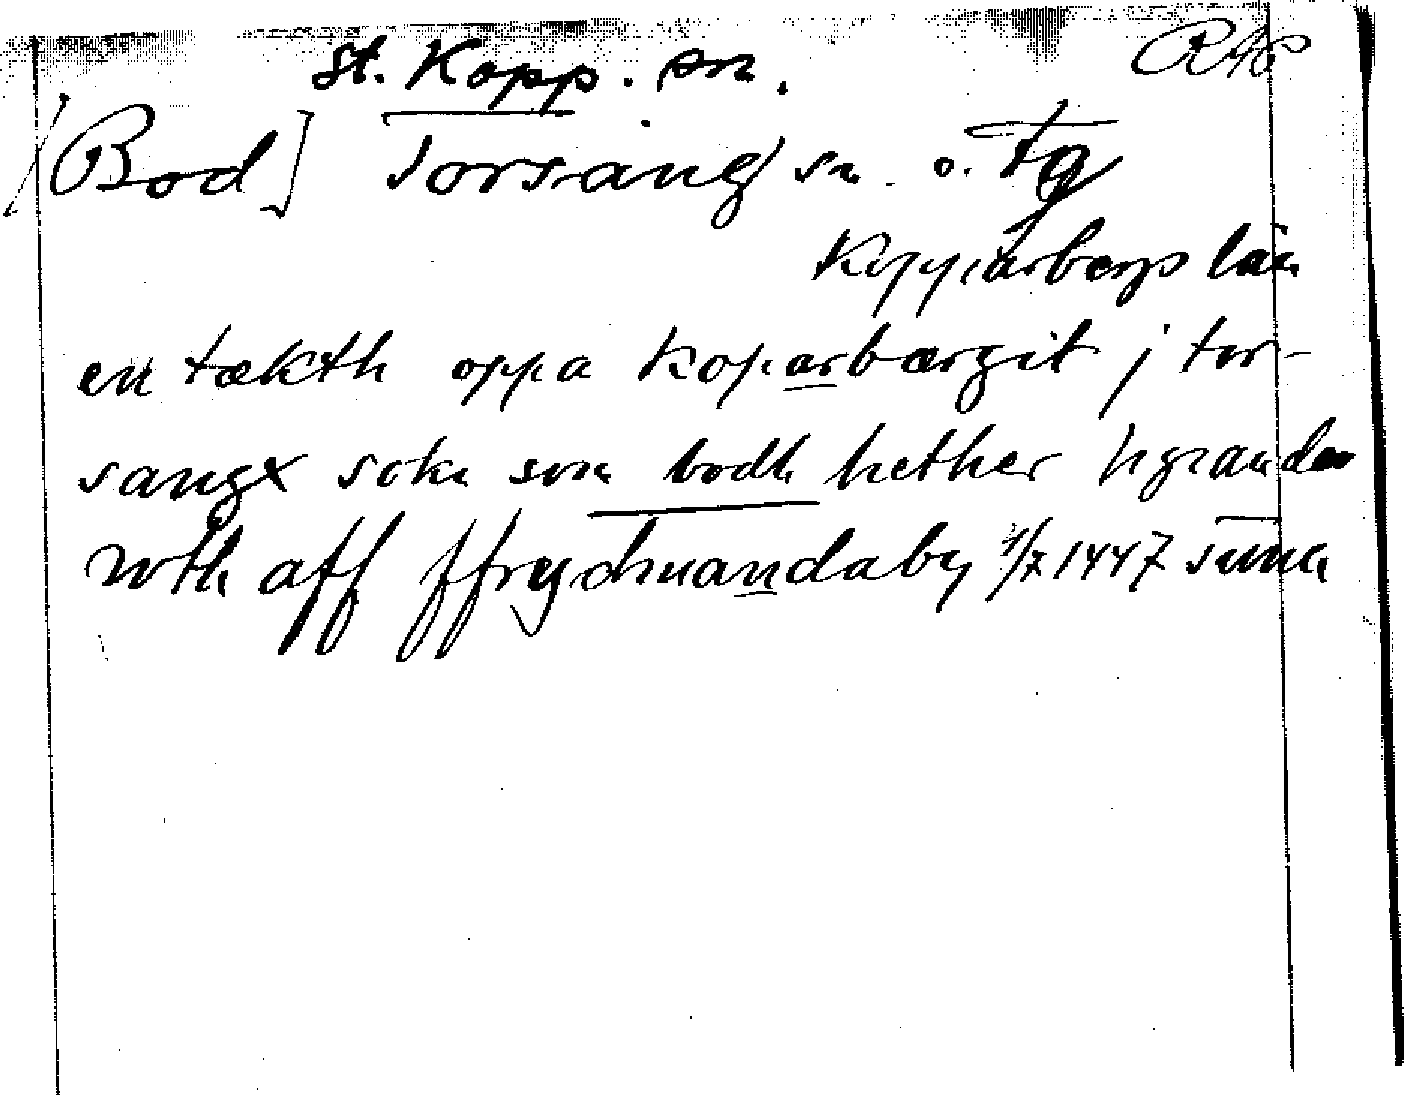 St. Kopp. sn. RAp
[Bod] Torsång sn. o. tg
Kopparbergs län
en tækth oppa koparbærgit j tor-
sangx sokn som bodh hether hgranda
wth aff ffrydhuandaby 1/7 1447